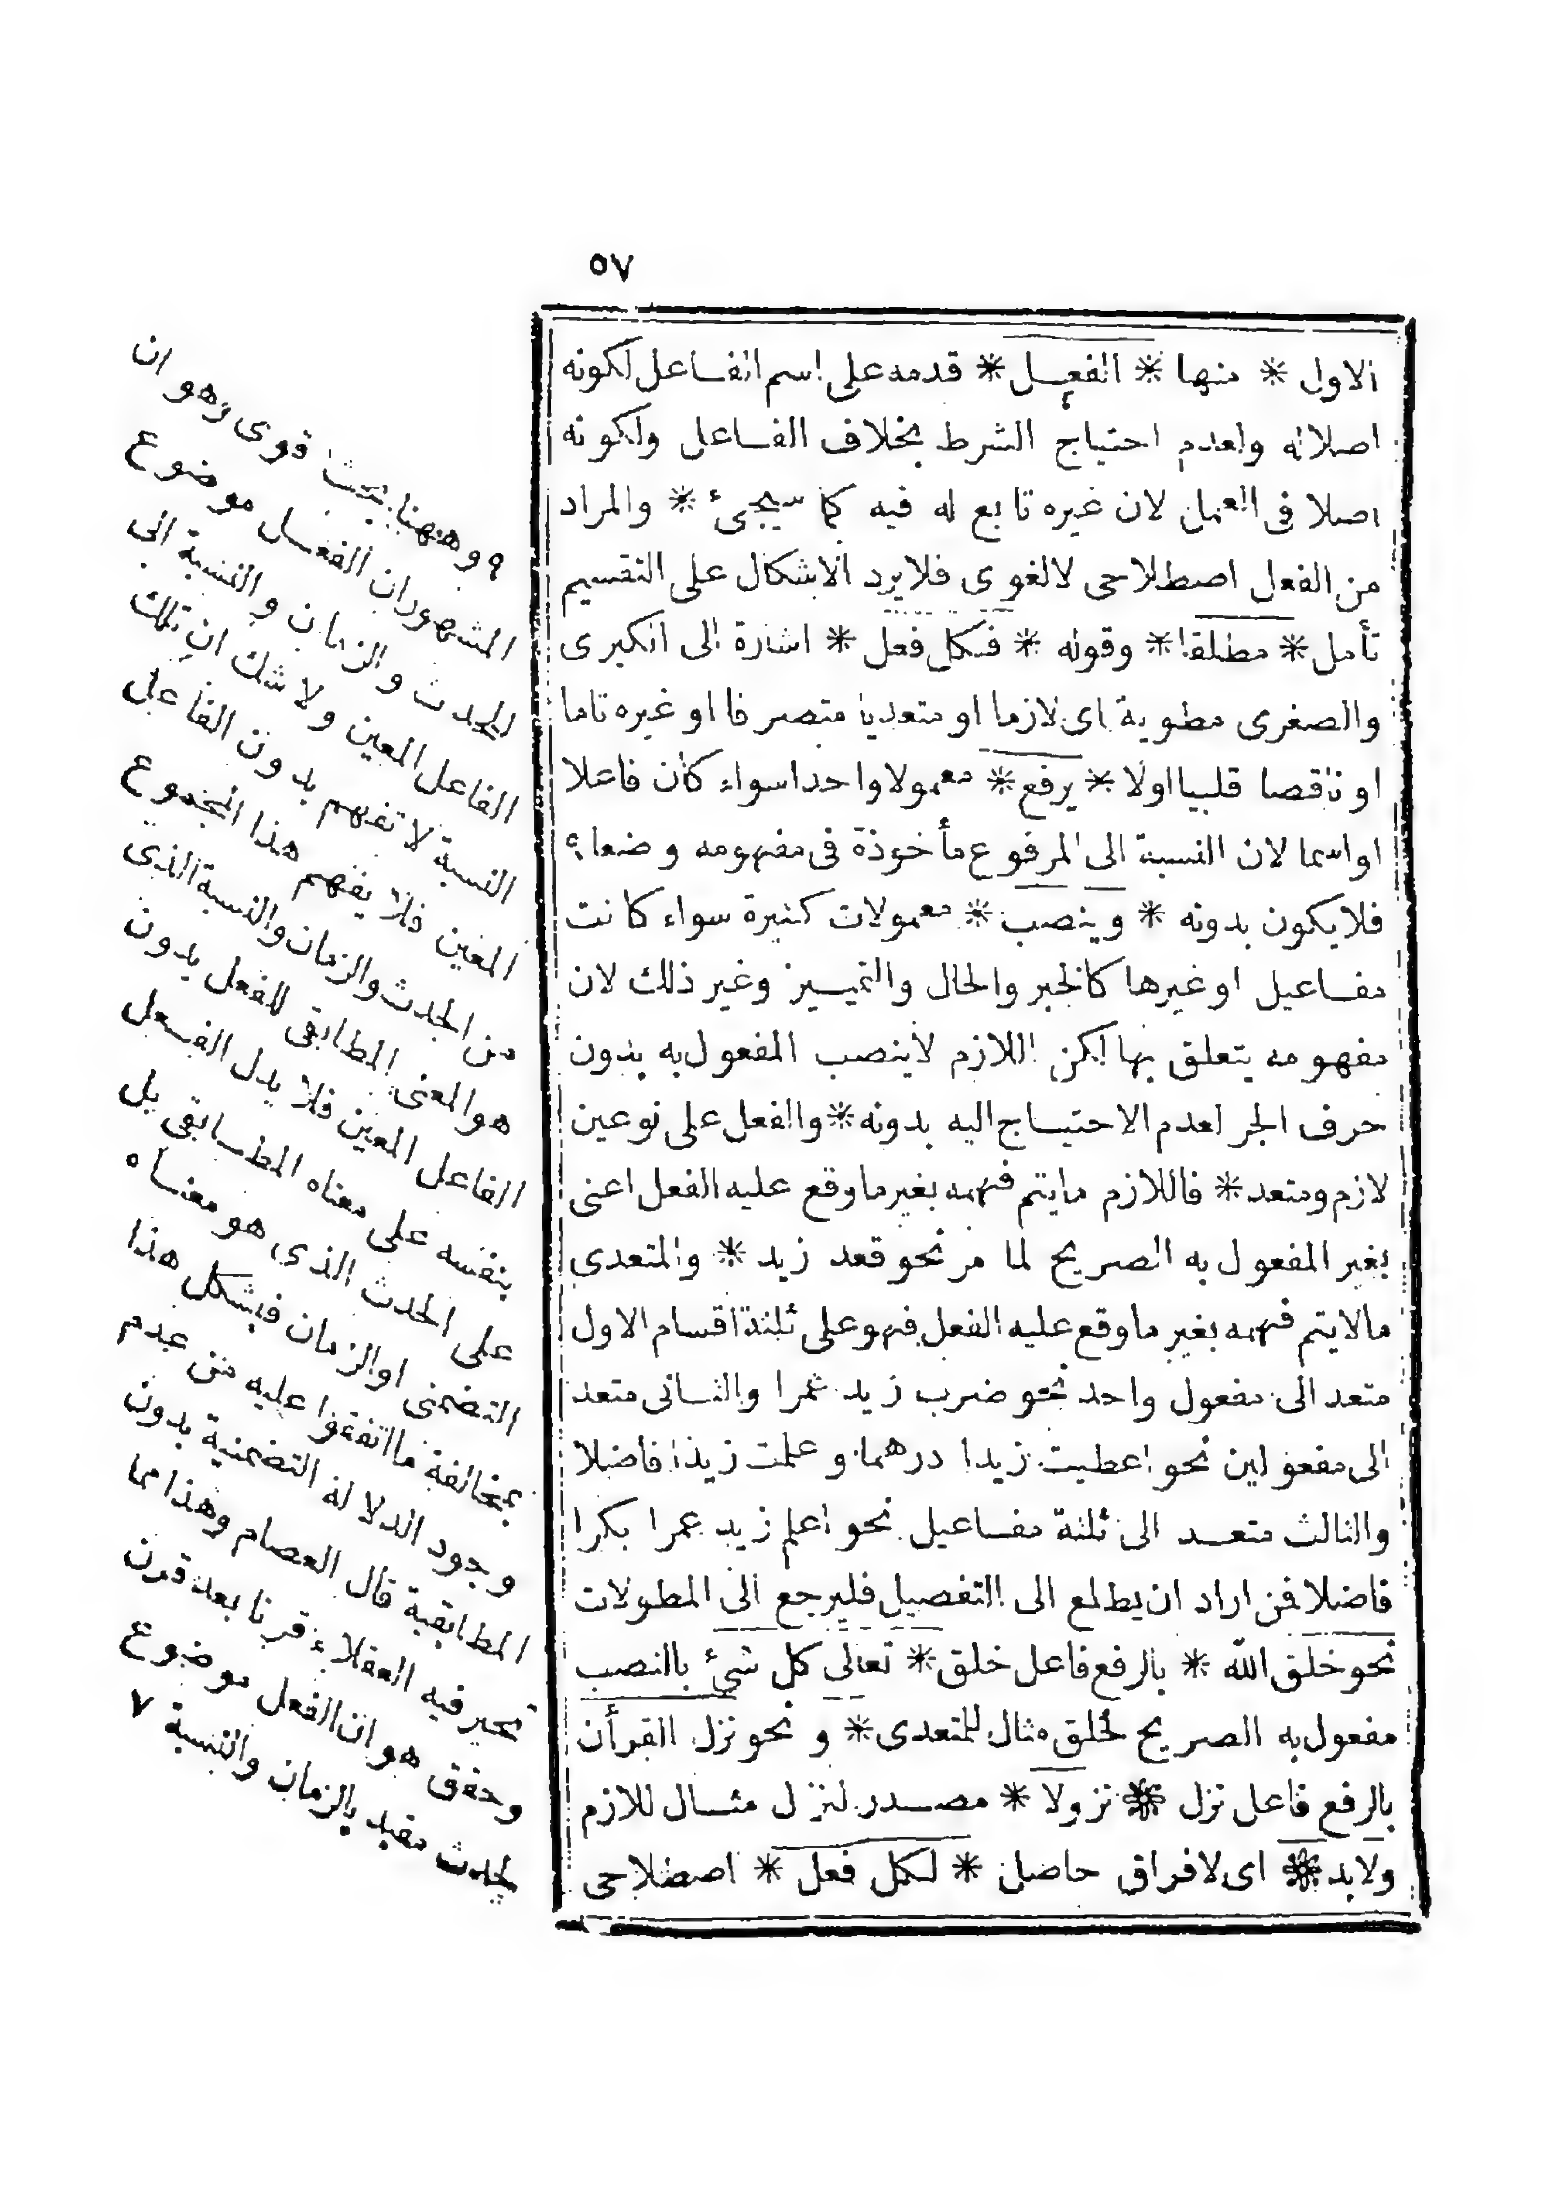 ٥٧
الاول * منها * الفعل * قدمه على اسم الفاعل لكونه
اصلا له ولعدم احتياج الشرط بخلاف الفاعل ولكونه
اصلا فى العمل لان غيره تابع له فيه كما سيجئ * والمراد
من الفعل اصطلاحى لا لغوى فلا يرد الاشكال على التقسيم
تأمل * مطلقا * وقوله * فكل فعل * اشارة الى الكبرى
والصغرى مطوية اى لازما او متعديا متصرفا او غيره تاما
او ناقصا قلبيا اولا * يرفع * معمولا واحدا سواء كان فاعلا
او اسما لان النسبة الى المرفوع مأخوذة فى مفهومه وضعا ٩
فلا يكون بدونه * وينصب * معمولات كثيرة سواء كانت
مفاعيل او غيرها كالخبر والحال والتمييز وغير ذلك لان
مفهومه يتعلق بها لكن اللازم لا ينصب المفعول به بدون
حرف الجر لعدم الاحتياج اليه بدونه * والفعل على نوعين
لازم ومتعد * فاللازم ما يتم فهمه بغير ما وقع عليه الفعل اعنى
بغير المفعول به الصريح لما مر نحو قعد زيد * والمتعدى
مالا يتم فهمه بغير ما وقع عليه الفعل فهو على ثلثة اقسام الاول
متعد الى مفعول واحد نحو ضرب زيد عمرا والثانى متعد
الى مفعولين نحو اعطيت زيدا درهما وعلمت زيدا فاضلا
والثالث متعد الى ثلثة مفاعيل نحو اعلم زيد عمرا بكرا
فاضلا فمن اراد ان يطلع الى التفصيل فليرجع الى المطولات
نحو خلق الله * بالرفع فاعل خلق * تعالى كل شئ بالنصب
مفعول به الصريح لخلق مثال للمتعدى * و نحو نزل القرأن
بالرفع فاعل نزل * نزولا * مصدر لنزل مثال للازم
ولابد * اى لا فراق حاصل * لكل فعل * اصطلاحى
٩ وههنا بحث قوى وهو ان
المشهوران الفعل موضوع
للحدث والزمان والنسبة الى
الفاعل المعين ولا شك ان تلك
النسبة لا تفهم بدون الفاعل
المعين فلا يفهم هذا المجموع
من الحدث والزمان والنسبة الذى
هو المعنى المطابقى للفعل بدون
الفاعل المعين فلا يدل الفعل
بنفسه على معناه المطابقى بل
على الحدث الذى هو معناه
التضمنى او الزمان فيشكل هذا
بمخالفة ما اتفقوا عليه من عدم
وجود الدلالة التضمنية بدون
المطابقية قال العصام وهذا مما
تحير فيه العقلاء قرنا بعد قرن
وحقق هو ان الفعل موضوع
لحدث مقيد بالزمان والنسبة ٧